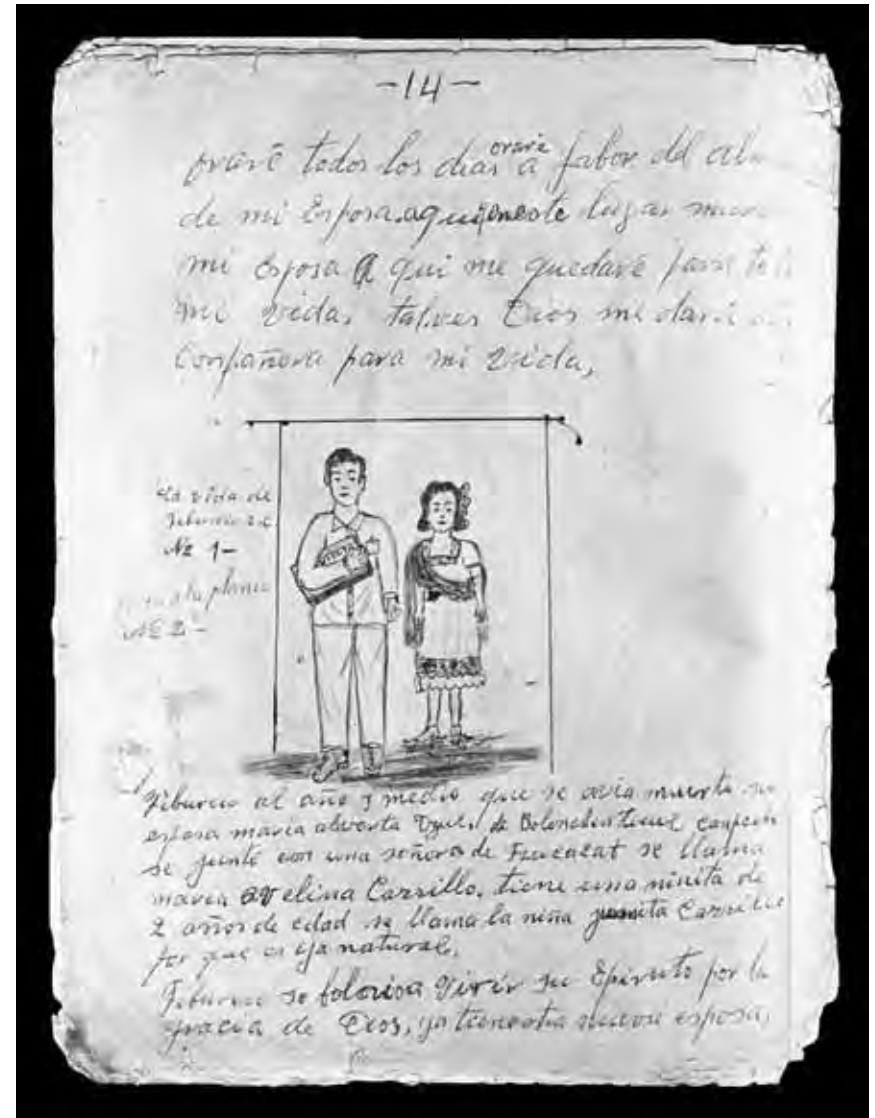 -14-
oraré todos los dias orare a fabor del al
de mi Esposa. aqui eneste lugar
mi esposa A qui me quedaré para
mi vida, talves Dios me dara
Conpañera para mi vida,
La vida de
Tiburcio
No 1-
a la plana
No 2-
Tiburcio al año y medio que se avia muerto su
esposa maria alverta de Bolonchen
se junto con una señora de se llama
maria avelina Carrillo. tiene una ninita de
2 años de edad se llama la niña juanita Carrillo
por que es ija natural.
Tiburcio se vivir su Epiruto por la
gracia de Dios, ya tiene otra nueva esposa,